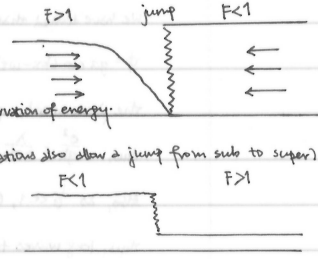 F>1 jump F<1
rvation of energy.
ations also allow a jump from sub to super)
F<1 F>1